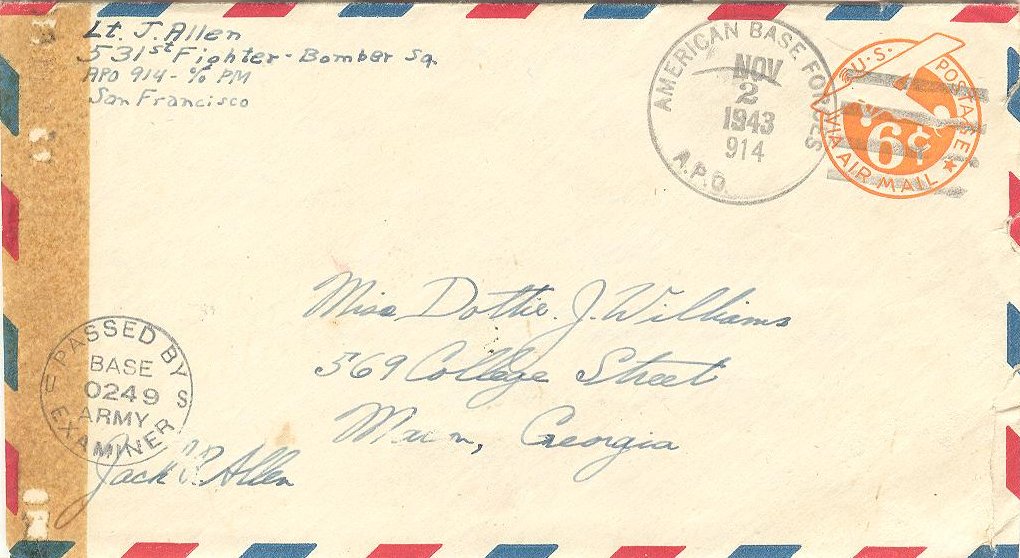 Lt. J. Allen
531st Fighter-Bomber Sq.
APO 914 - % PM
San Francisco
AMERICAN BASE FORCES
NOV
2
1943
914
A.P.O.
U.S. POSTAGE
6¢
VIA AIR MAIL
Miss Dottie J. Williams
569 College Street
Macon, Georgia
PASSED BY
BASE
0249 S
ARMY
EXAMINER
Jack Allen